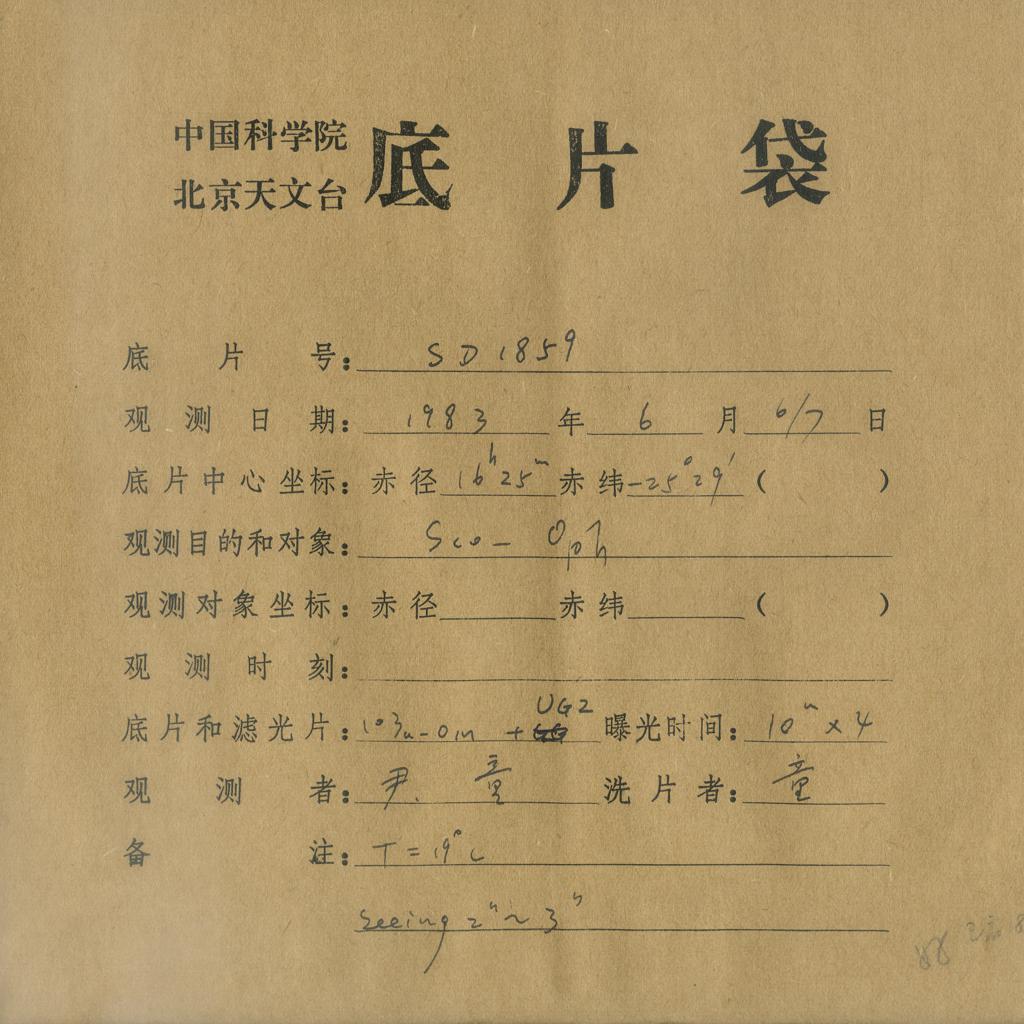 中国科学院
北京天文台
底片袋
底片号：SD1859
观测日期：1983年6月6/7日
底片中心坐标：赤径16ʰ25ᵐ赤纬-25°29′（ ）
观测目的和对象：Sco- Oph
观测对象坐标：赤径 赤纬 （ ）
观测时刻：
底片和滤光片：103a-Om + UG2 曝光时间：10ᵐ×4
观测者：尹. 童 洗片者：童
备注：T=19°C
Seeing 2"~3"